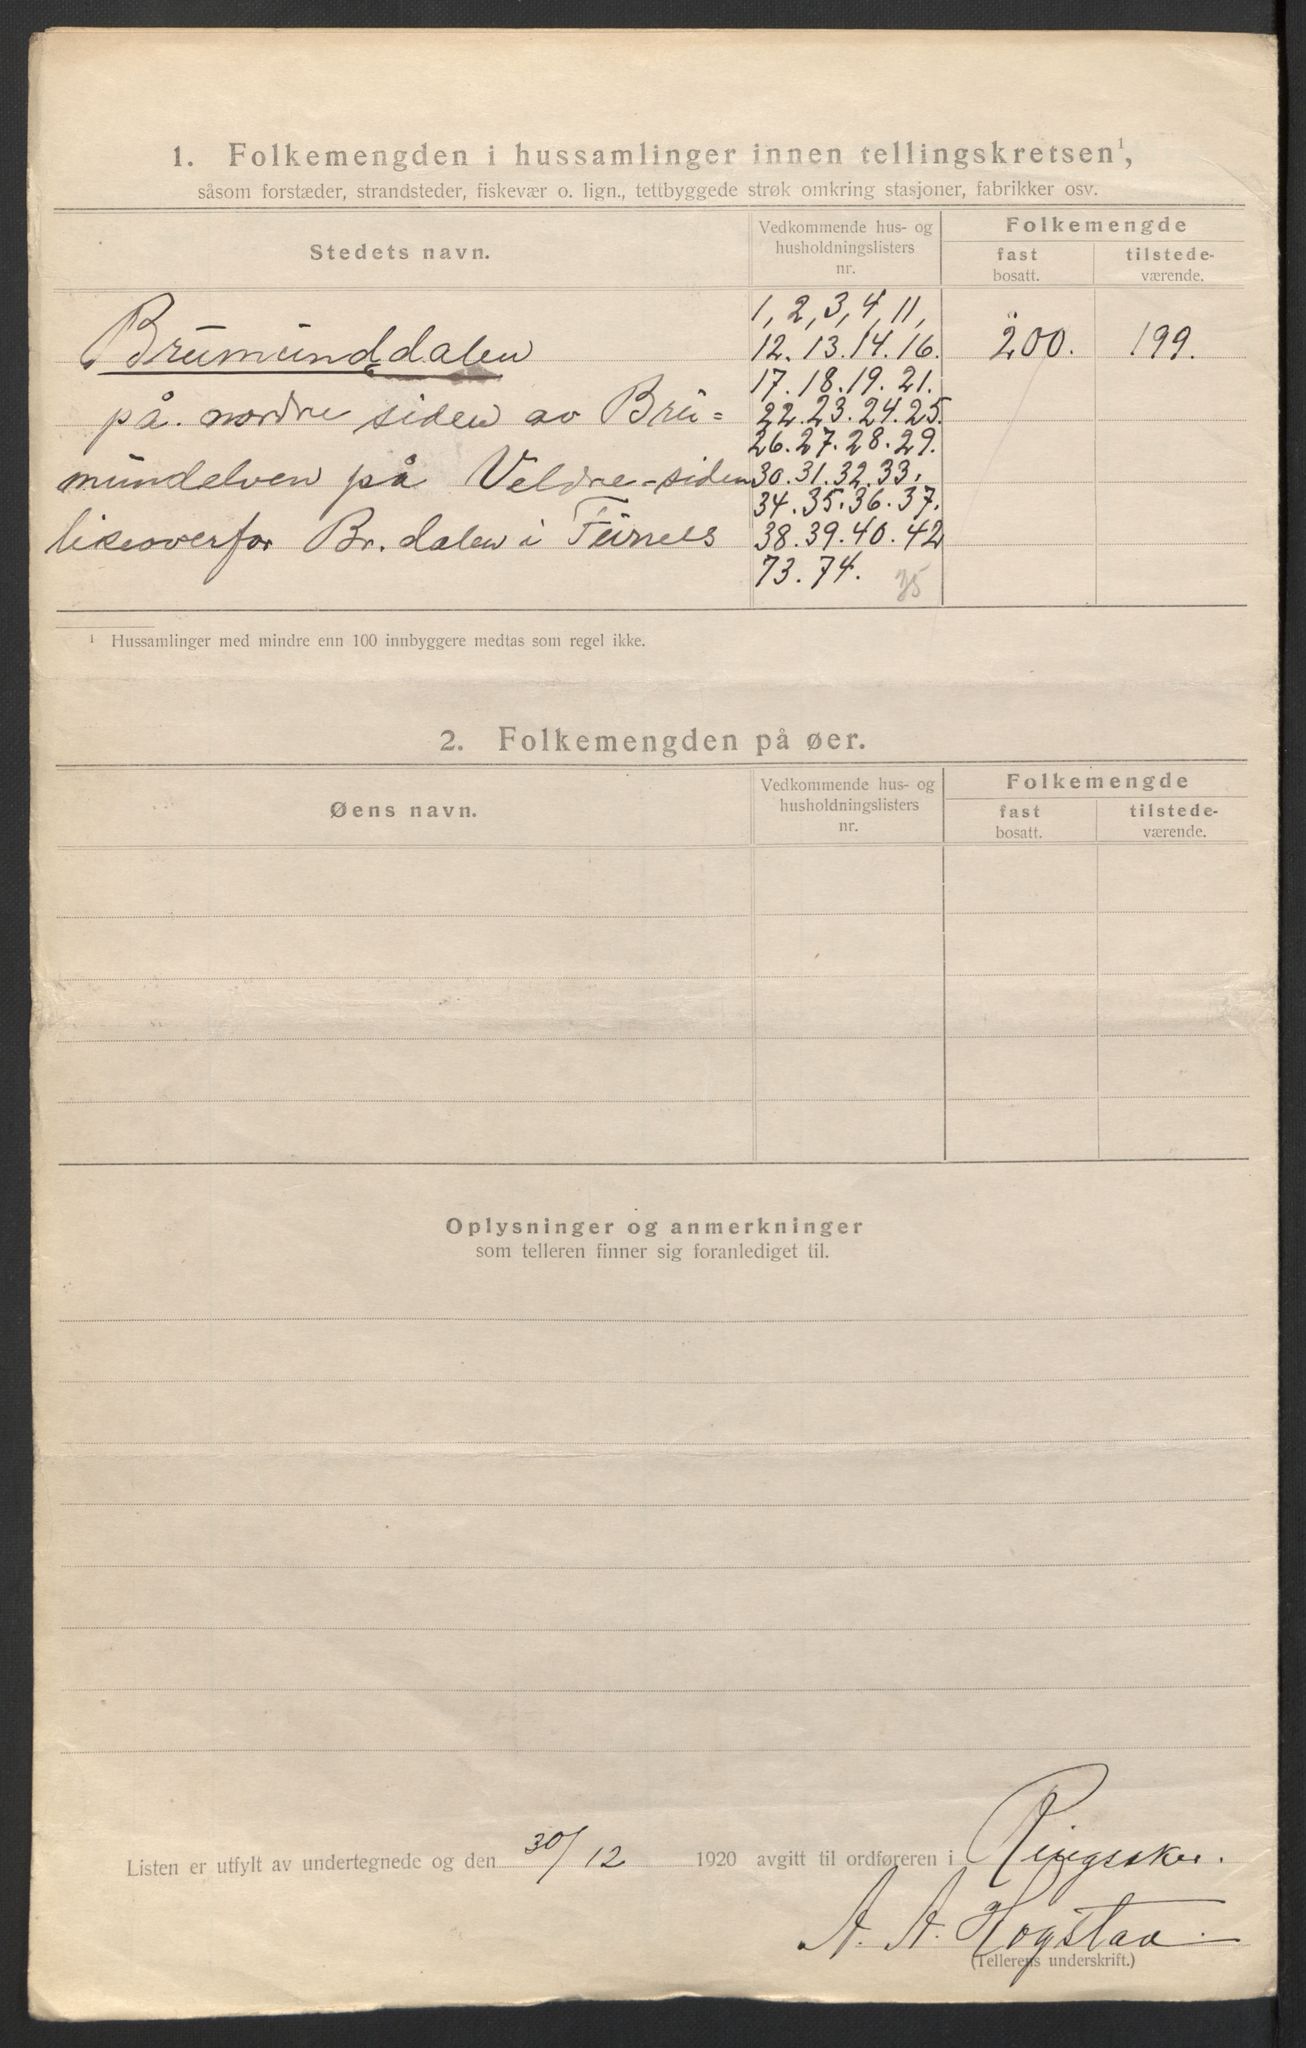 1. Folkemengden i hussamlinger innen tellingskretsen¹,
såsom forstæder, strandsteder, fiskevær o. lign., tettbyggede strøk omkring stasjoner, fabrikker osv.
Stedets navn.
Vedkommende hus- og
husholdningslisters
nr.
Folkemengde
fast
bosatt.
tilstede-
værende.
Brumunddalen
på nordre siden av Bru=
mundelven på Veldre-siden
likeoverfor Br. dalen i Furnes
1, 2, 3, 4, 11,
12. 13. 14. 16.
17. 18. 19. 21.
22. 23. 24. 25.
26. 27. 28. 29.
30. 31. 32. 33.
34. 35. 36. 37.
38. 39. 40. 42
73. 74.
35
200.
199.
¹ Hussamlinger med mindre enn 100 innbyggere medtas som regel ikke.
2. Folkemengden på øer.
Øens navn.
Vedkommende hus- og
husholdningslisters
nr.
Folkemengde
fast
bosatt.
tilstede-
værende.
Oplysninger og anmerkninger
som telleren finner sig foranlediget til.
Listen er utfylt av undertegnede og den 30/12 1920 avgitt til ordføreren i Ringsaker.
A. A. Hogstad
(Tellerens underskrift.)